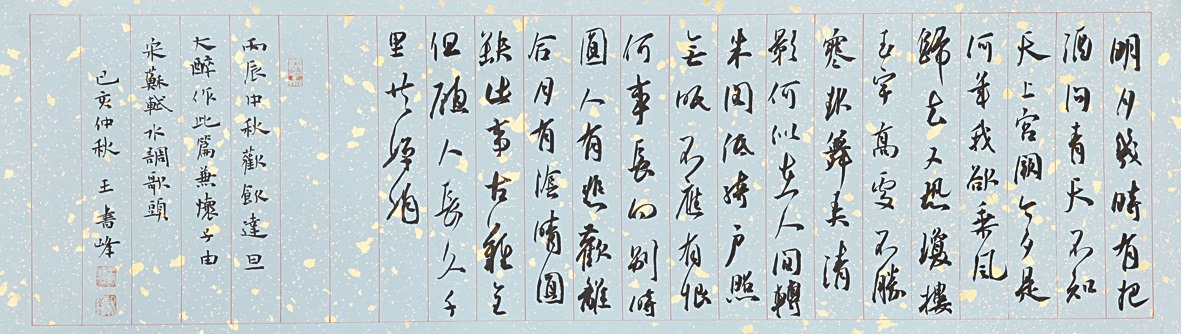 明月幾時有把
酒问青天不知
天上宫闕今夕是
何年我欲乘風
歸去又恐瓊樓
玉宇高處不勝
寒起舞弄清
影何似在人间轉
朱閣低綺户照
無眠不應有恨
何事長向别時
圓人有悲歡離
合月有陰晴圓
缺此事古難全
但願人長久千
里共嬋娟
丙辰中秋歡飲達旦
大醉作此篇兼懷子由
宋蘇軾水調歌頭
己亥仲秋 王書峰